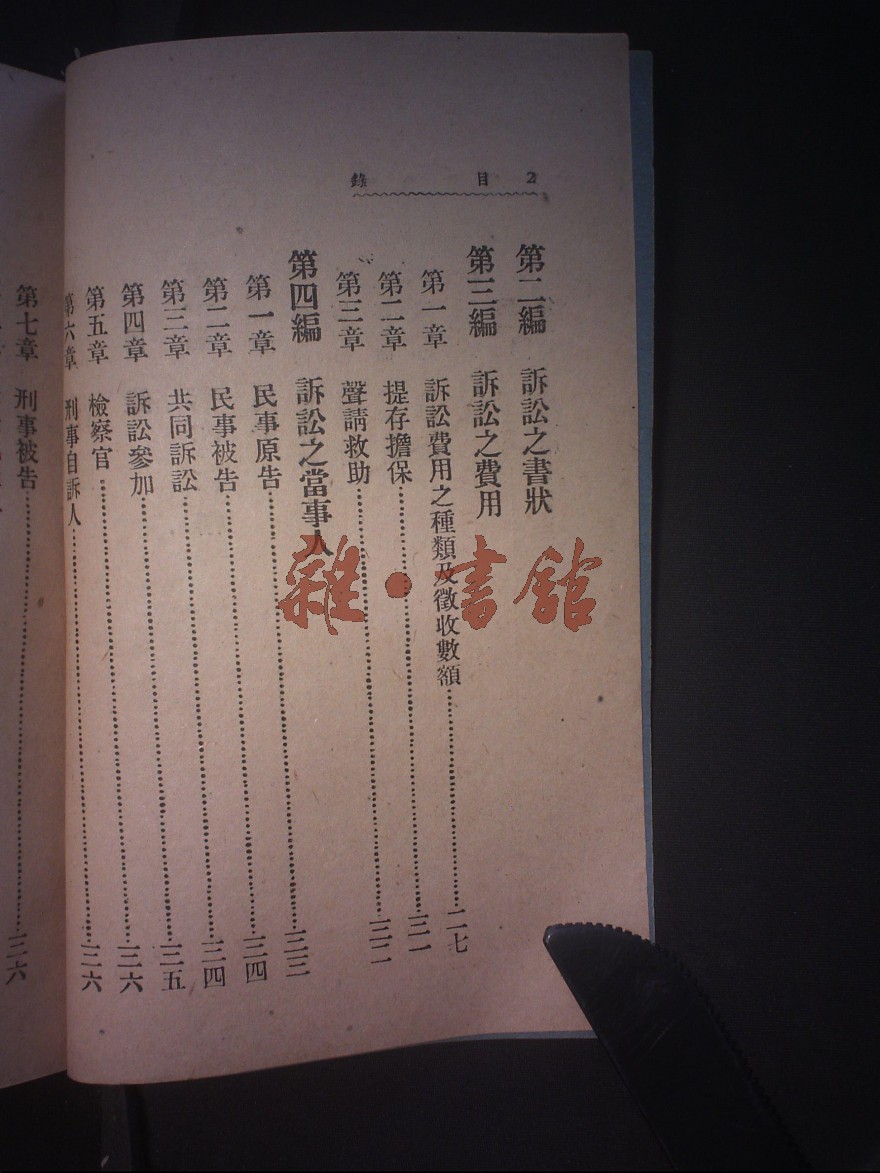 2 目錄
第二編 訴訟之書狀
第三編 訴訟之費用
第一章 訴訟費用之種類及徵收數額……二七
第二章 提存擔保……三一
第三章 聲請救助……三二
第四編 訴訟之當事人
第一章 民事原告……三三
第二章 民事被告……三四
第三章 共同訴訟……三四
第四章 訴訟參加……三五
第五章 檢察官……三六
第六章 刑事自訴人……三六
第七章 刑事被告……三六
雜·書館